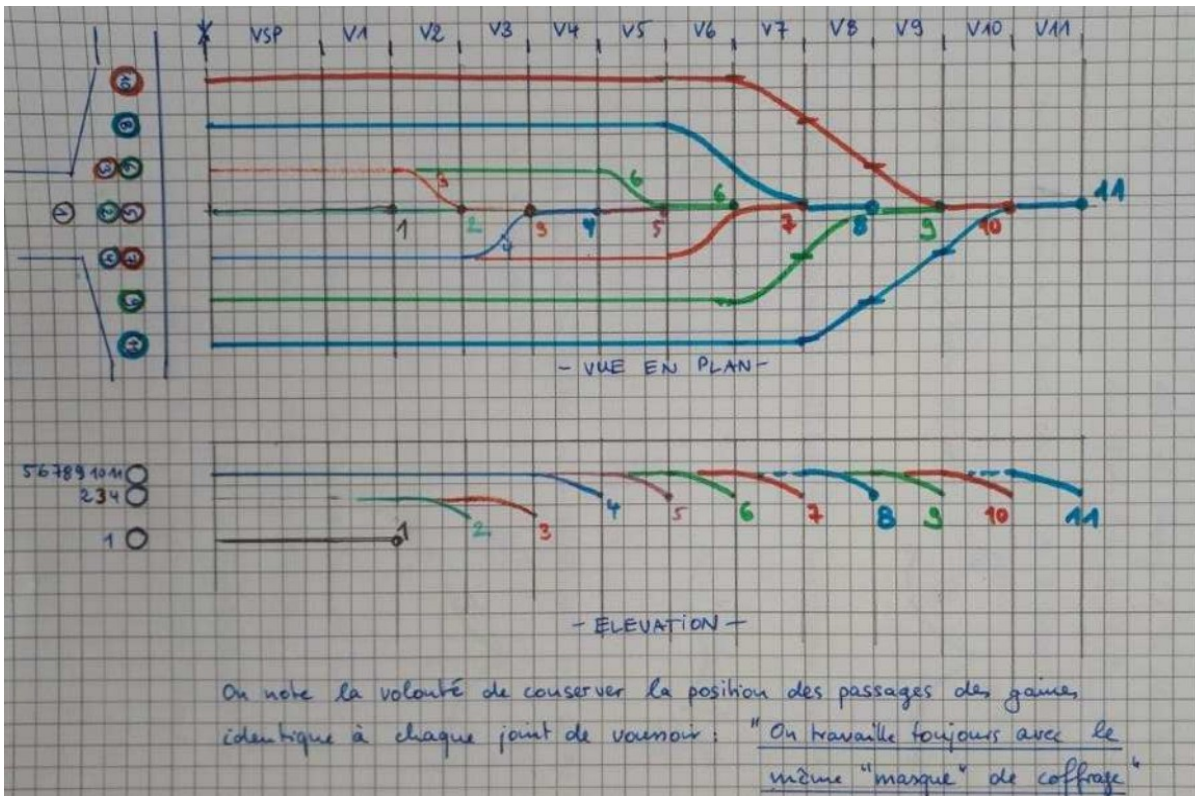 VSP V1 V2 V3 V4 V5 V6 V7 V8 V9 V10 V11
10
8
3 6
3 6
1 2 5
1 2 3 4 5 6 7 8 9 10 11
4 7
4
9
11
- VUE EN PLAN -
5 6 7 8 9 10 11
2 3 4
1
1 2 3 4 5 6 7 8 9 10 11
- ELEVATION -
On note la volonté de conserver la position des passages des gaines
identique à chaque joint de voussoir : "On travaille toujours avec le
même "masque" de coffrage"